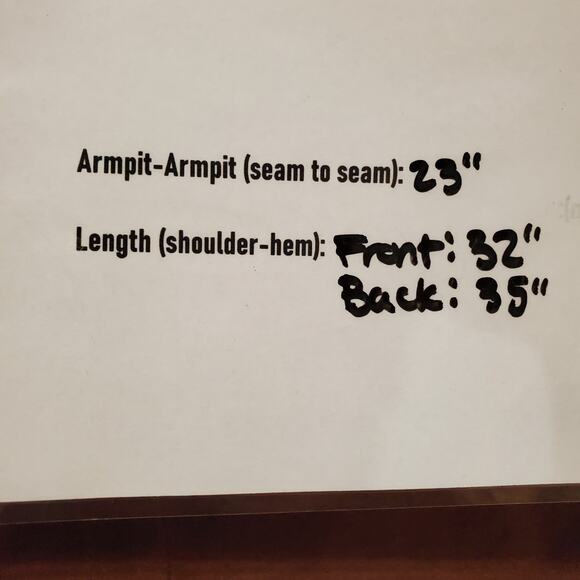 Armpit-Armpit (seam to seam): 23"
Length (shoulder-hem): Front: 32"
Back: 35"